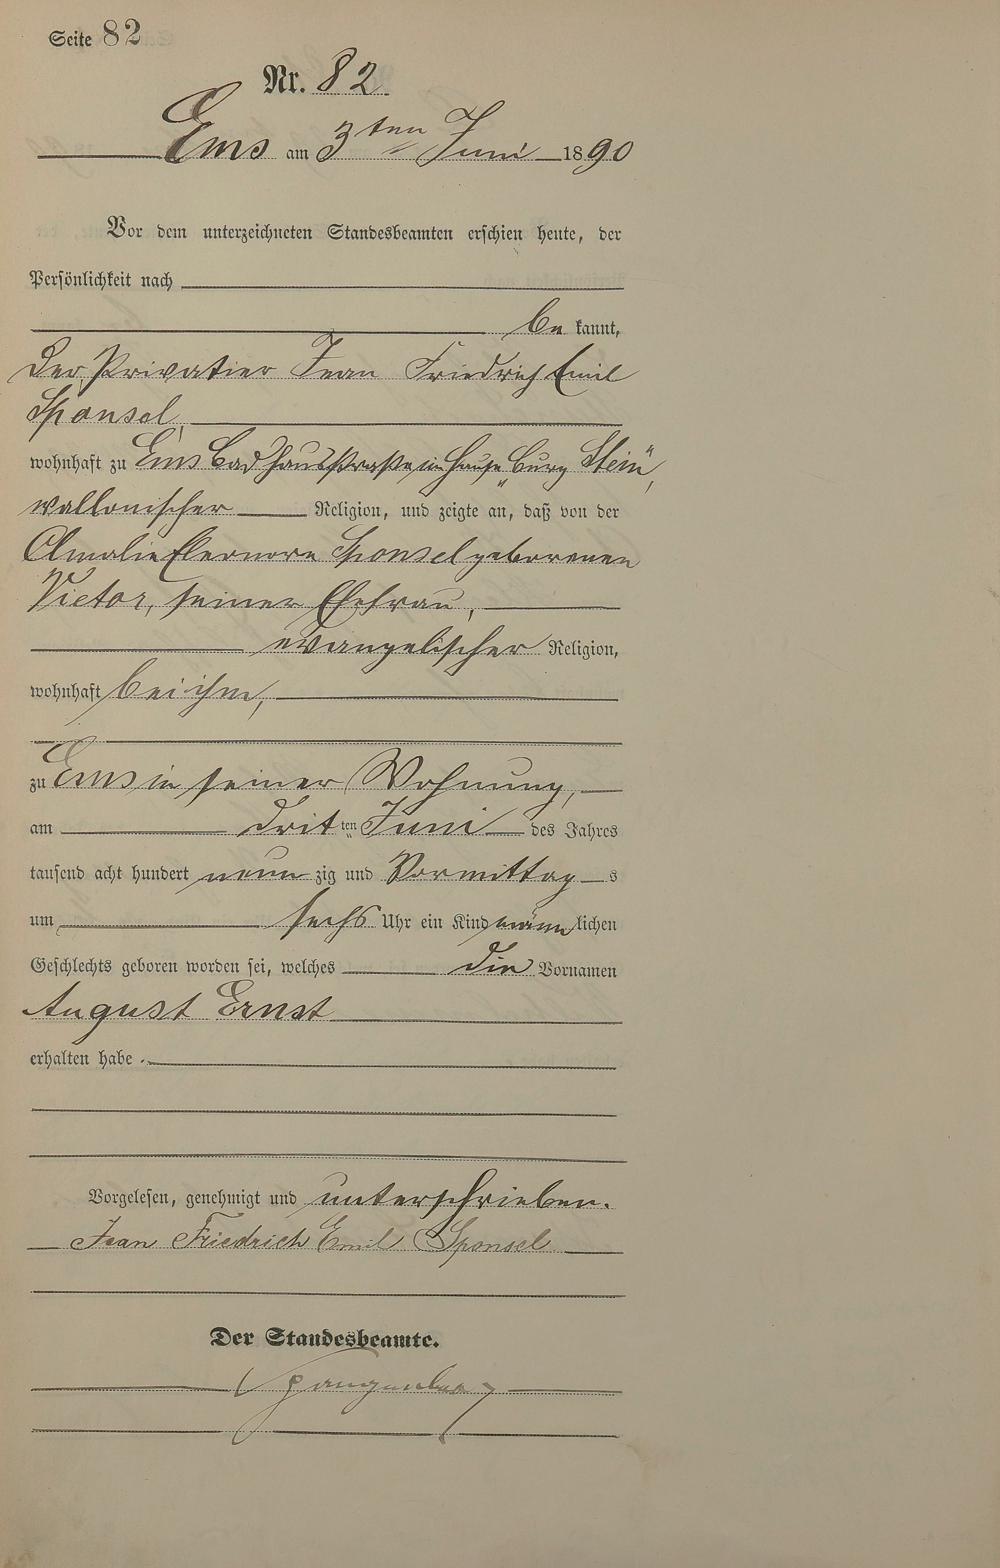 Seite 82
Nr. 82.
Ems am 3ten Juni 1890
Vor dem unterzeichneten Standesbeamten erschien heute, der
Persönlichkeit nach
be kannt,
der Privatier Jean Friedrich Emil
Sponsel,
wohnhaft zu Ems Badhausstraße im Hause „Burg Stein“,
wallonischer Religion, und zeigte an, daß von der
Amalie Eleonore Sponsel geborenen
Victor, seiner Ehefrau,
evangelischer Religion,
wohnhaft bei ihm,
zu Ems in seiner Wohnung,
am dritten Juni des Jahres
tausend acht hundert neunzig und Vormittags
um sechs Uhr ein Kind männlichen
Geschlechts geboren worden sei, welches die Vornamen
August Ernst
erhalten habe.
Vorgelesen, genehmigt und unterschrieben.
Jean Friedrich Emil Sponsel
Der Standesbeamte.
Spangenberg